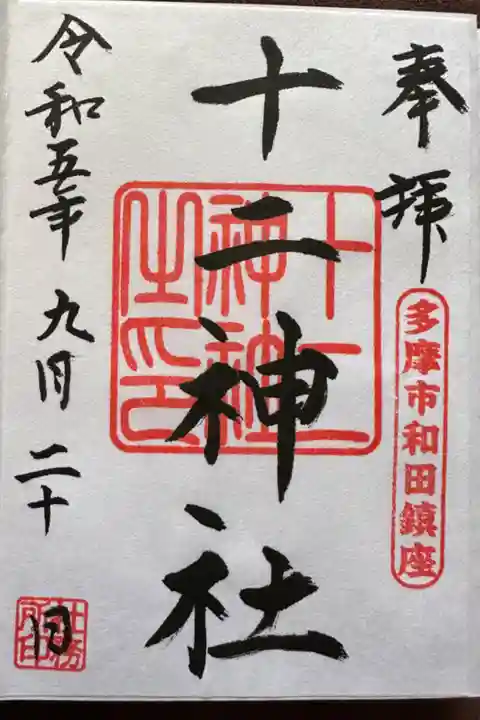 奉拝
多摩市和田鎮座
十二神社
十二神社之印
令和五年九月二十日
社務所印